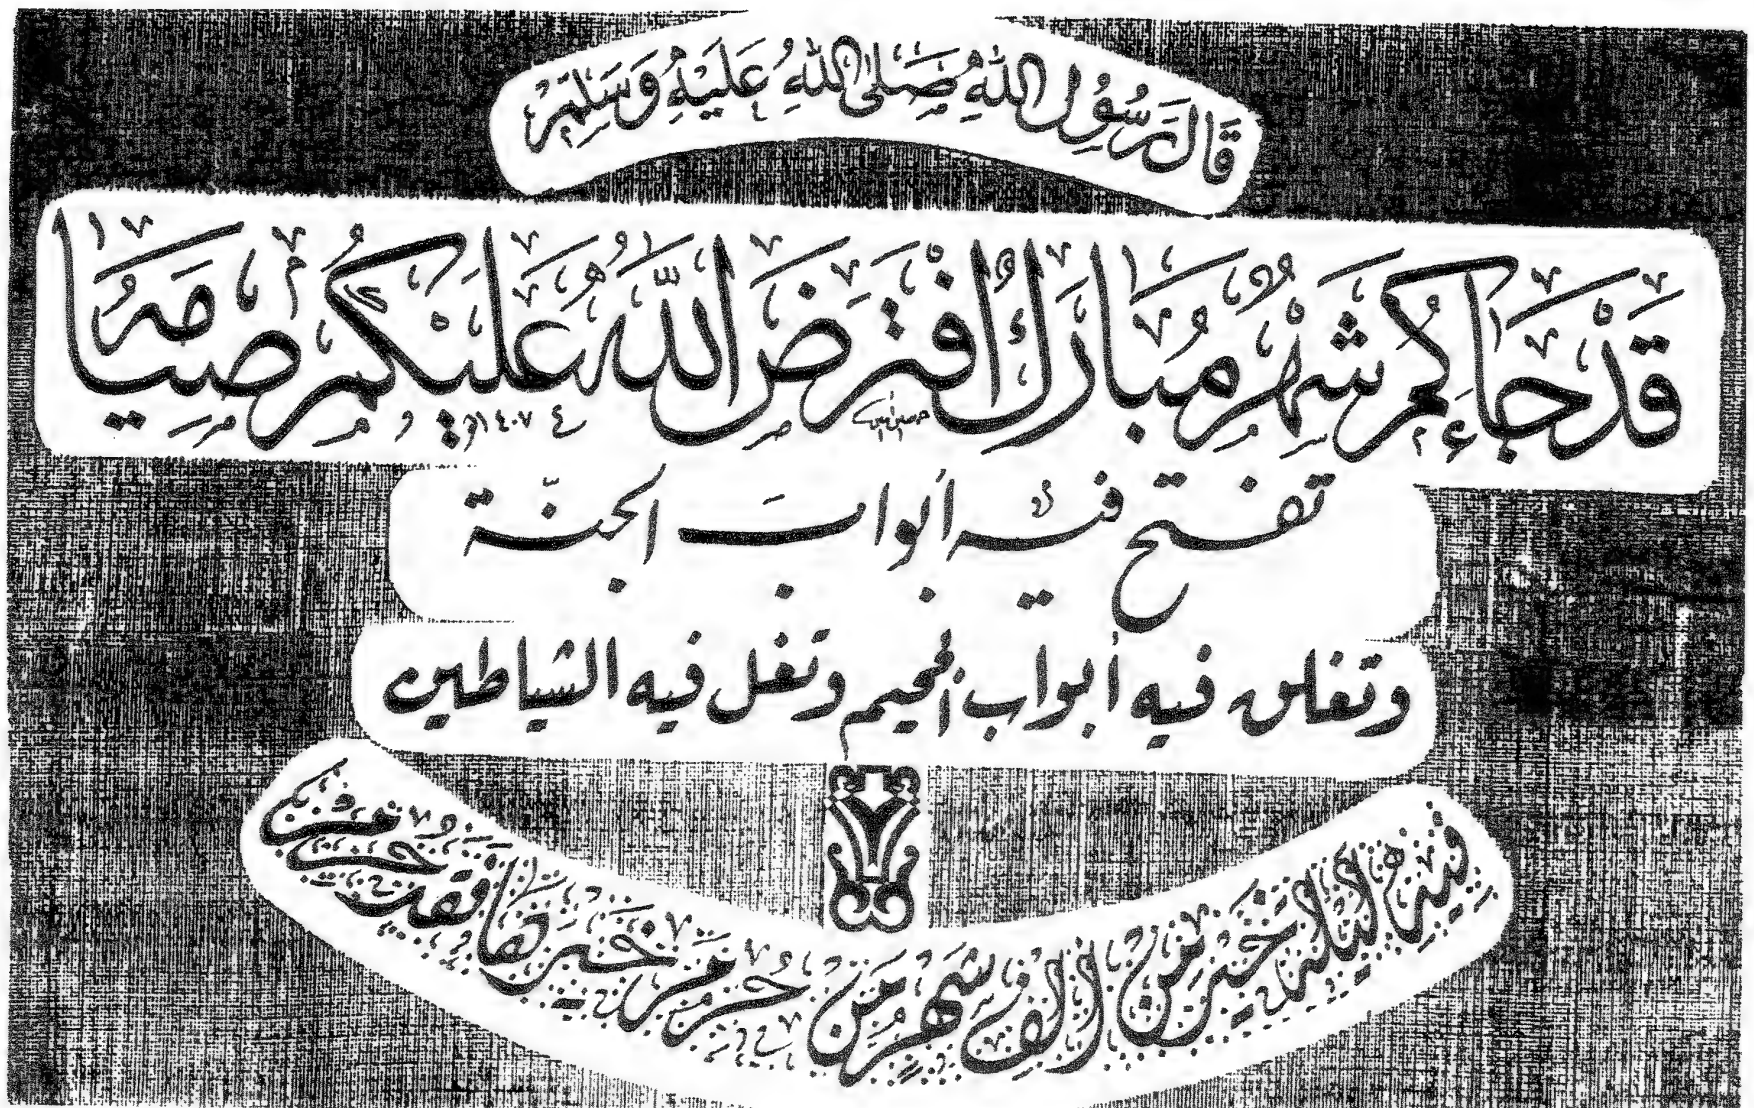 قَالَ رَسُوْلُ اللهِ صَلَى اللهُ عَلَيْهِ وَسَلَّمْ
قَدْ جَاءَكُمْ شَهْرٌ مُبَارَكٌ افْتَرَضَ اللّٰهُ عَلَيْكُمْ صِيَامَهُ
١٤٠٧
تفتح فيه ابواب الجنّة
وتغلق فيه أبواب الجحيم وتغل فيه الشياطين
فِيْهِ لَيْلَةٌ خَيْرٌ مِنْ أَلْفِ شَهْرٍ مَنْ حُرِمَ خَيْرَهَا فَقَدْ حُرِمَ